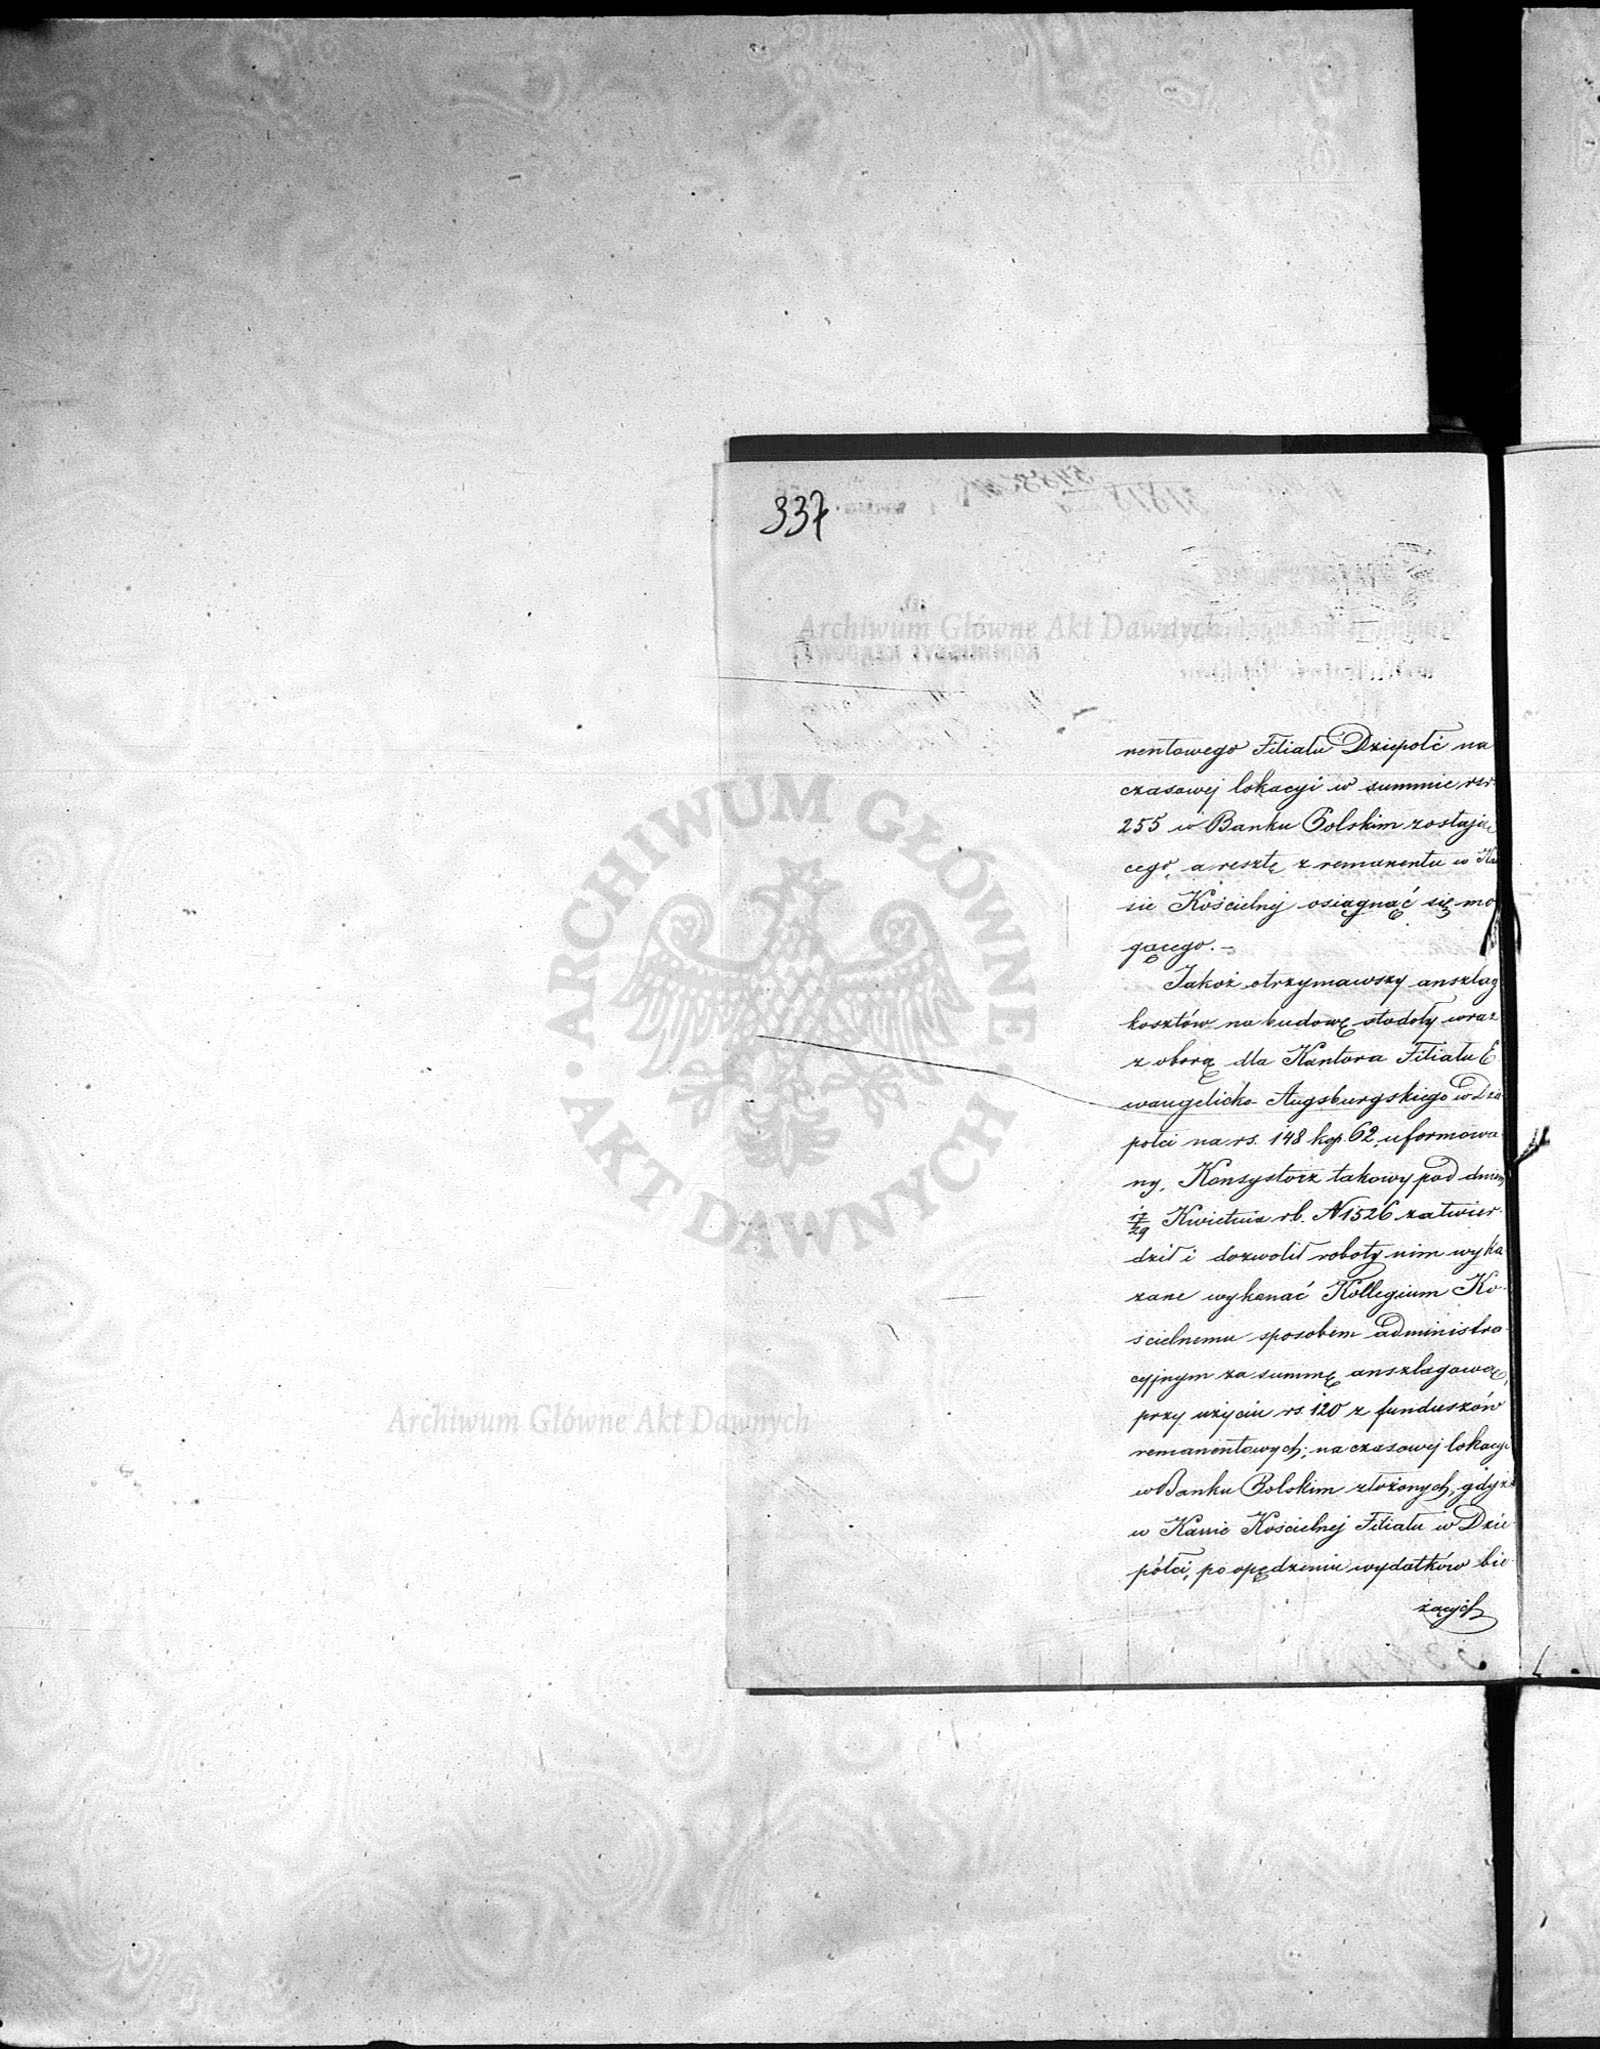 337
Archiwum Główne Akt Dawnych
nentowego Filiału Dziepołć na
czasowej lokacyi w summie rsr
255 w Banku Polskim zostają
cego, a resztę z remanentu w Ka
sie Kościelnej osiągnąć się mo
gącego. –
Jakoż otrzymawszy anszlag
kosztów na budowę stodoły wraz
z oborą dla Kantora Filiału E
wangelicko-Augsburgskiego w Dzie
połci na rs. 148 kop. 62, uformowa
ny, Konsystorz takowy pod dniem
17/29 Kwietnia r.b. N 1526 zatwier-
dził i dozwolił roboty nim wyka
zane wykonać Kollegium Ko-
ścielnemu sposobem administra-
cyjnym za summę anszlagową,
przy użyciu rs. 120 z funduszów
remanentowych, na czasowej lokacyi
w Banku Polskim złożonych, gdyż
w Kassie Kościelnej Filiału w Dzie-
półci, po opędzeniu wydatków bie-
żących
ARCHIWUM GŁÓWNE
AKT DAWNYCH
Archiwum Główne Akt Dawnych